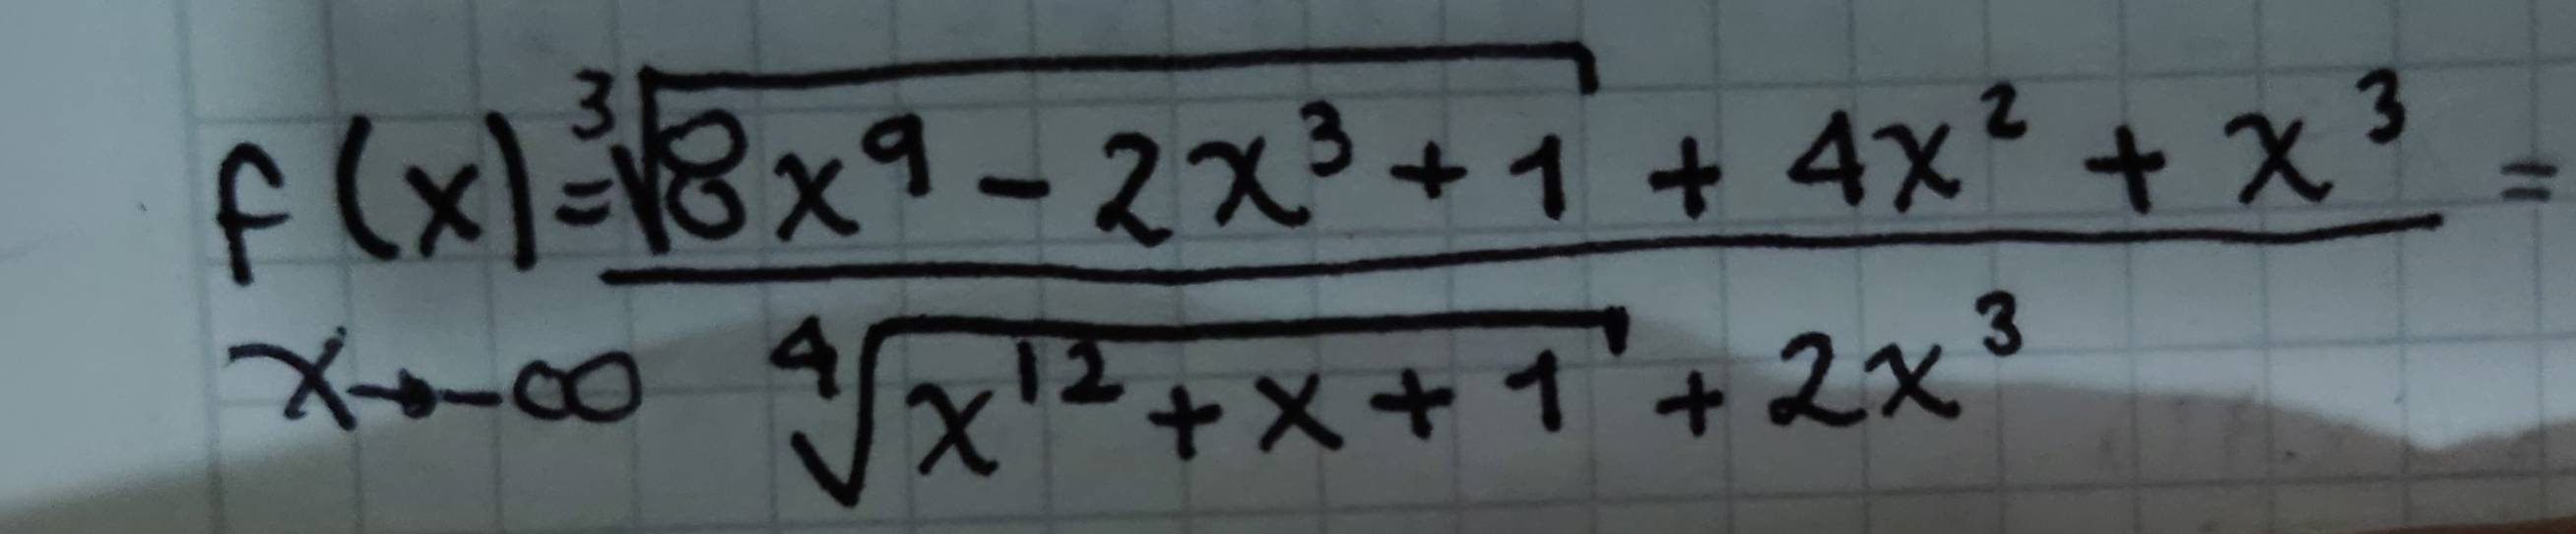 f(x) = ∛(8x⁹ - 2x³ + 1) + 4x² + x³ =
x→-∞ ∜(x¹² + x + 1) + 2x³